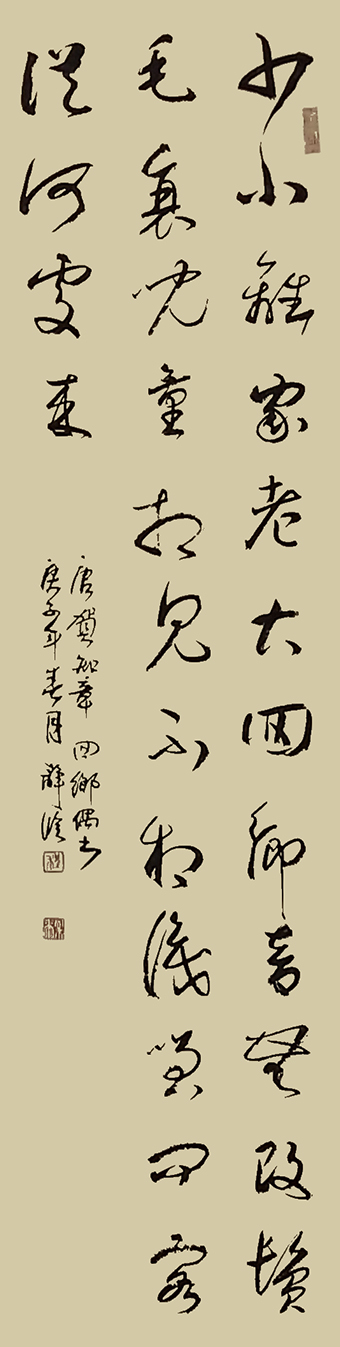 少小離家老大回鄉音無改鬢
毛衰兒童相見不相識笑問客
從何處來
唐賀知章回鄉偶書
庚子年春月薛